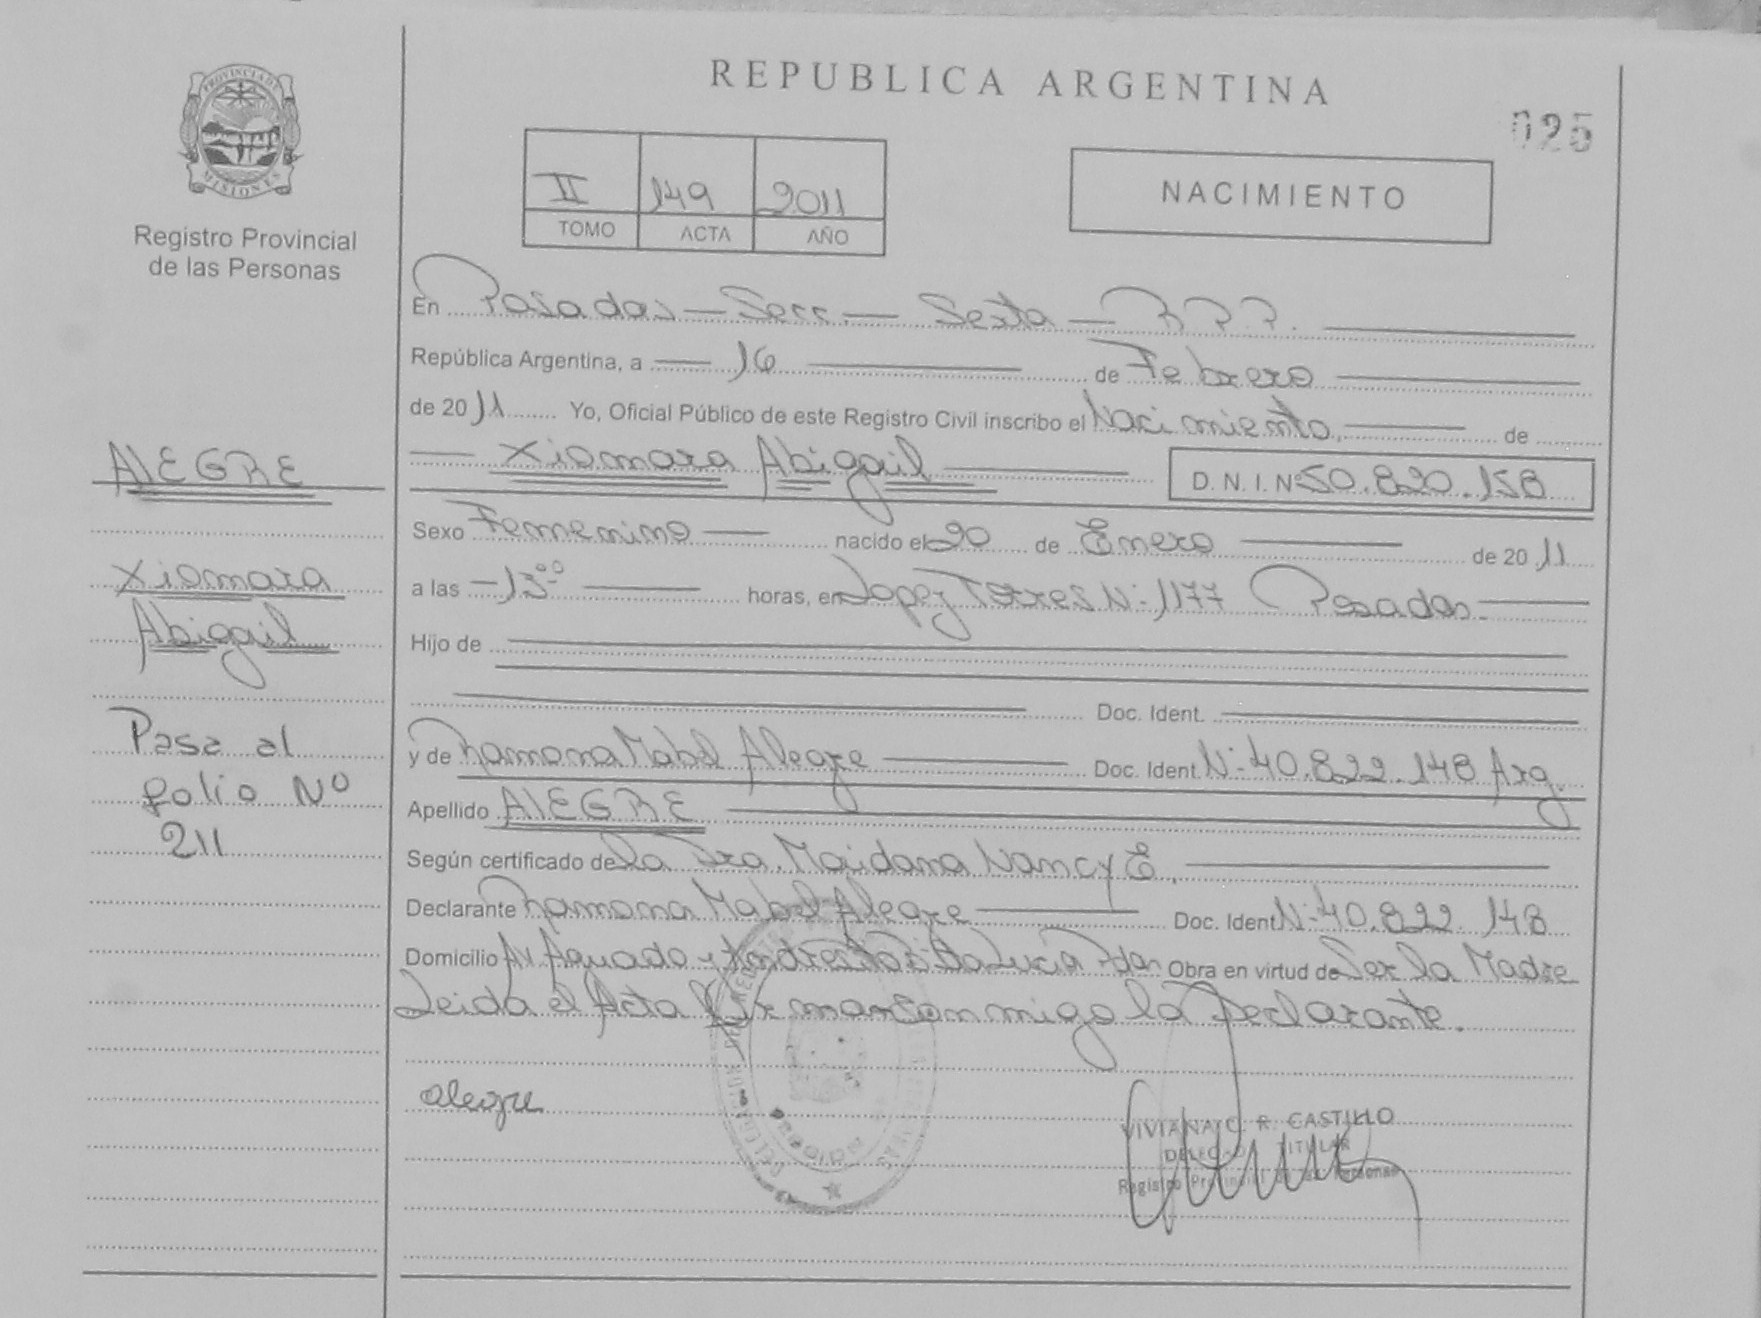 REPUBLICA ARGENTINA
025
PROVINCIA DE MISIONES
Registro Provincial
de las Personas
II 149 2011
TOMO ACTA AÑO
NACIMIENTO
En Posadas - Secc. - Sexta - R.P.P.
República Argentina, a 16 de Febrero
de 2011 Yo, Oficial Público de este Registro Civil inscribo el Nacimiento, de
Xiomara Abigail D. N. I. Nº 50.820.158
Sexo Femenino nacido el 20 de Enero de 2011
a las -13⁰⁰ horas, en Lopez Torres Nº 1177 Posadas.
Hijo de
Doc. Ident.
y de Ramona Mabel Alegre Doc. Ident. Nº 40.822.148 Arg.
Apellido AlEGRE
Según certificado de la Dra. Maidana Nancy E.
Declarante Ramona Mabel Alegre Doc. Ident. Nº 40.822.148
Domicilio Av Aguado y Sta Lucia Pdas Obra en virtud de Ser la Madre
Leida el Acta conmigo la Declarante.
Alegre
VIVIANA C. R. CASTILLO
TITULAR
Registro Provincial de las Personas
AlEGRE
Xiomara
Abigail
Pasa al
folio Nº
211